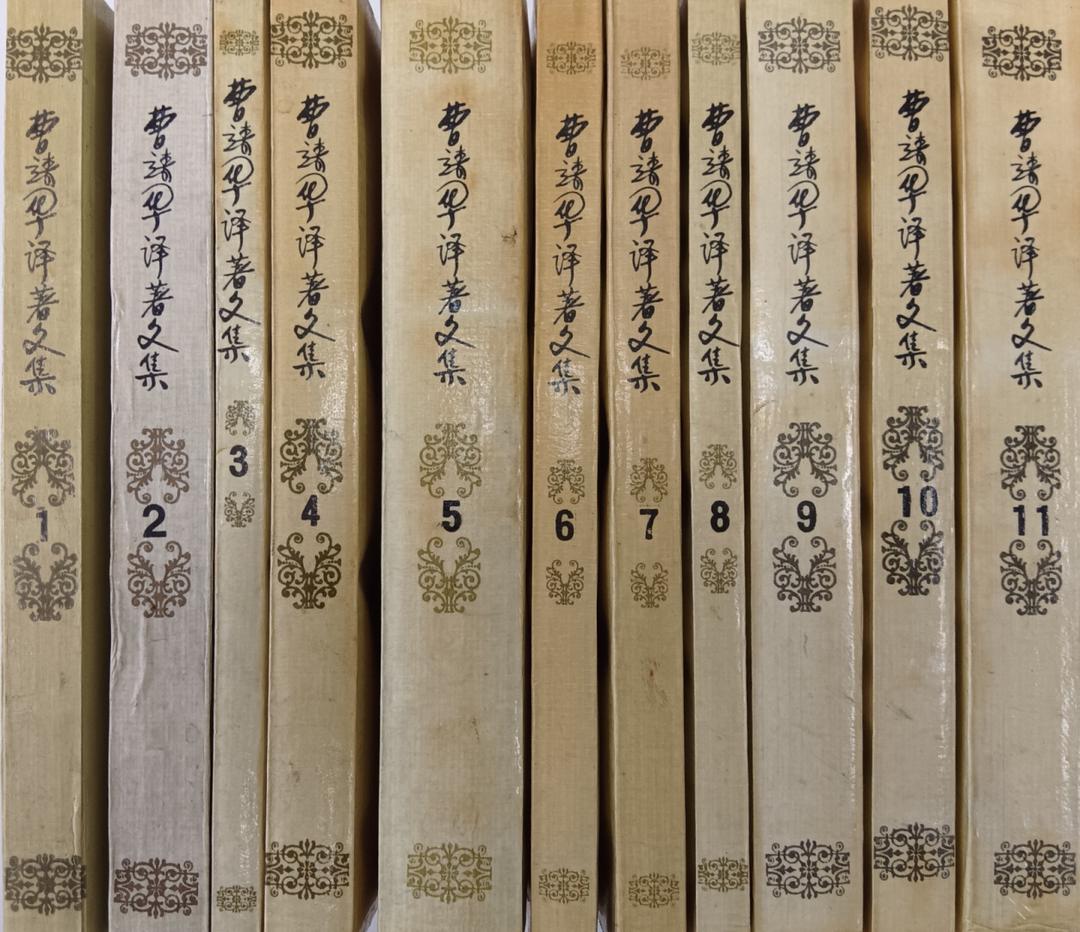 曹靖华译著文集
1
曹靖华译著文集
2
曹靖华译著文集
3
曹靖华译著文集
4
曹靖华译著文集
5
曹靖华译著文集
6
曹靖华译著文集
7
曹靖华译著文集
8
曹靖华译著文集
9
曹靖华译著文集
10
曹靖华译著文集
11